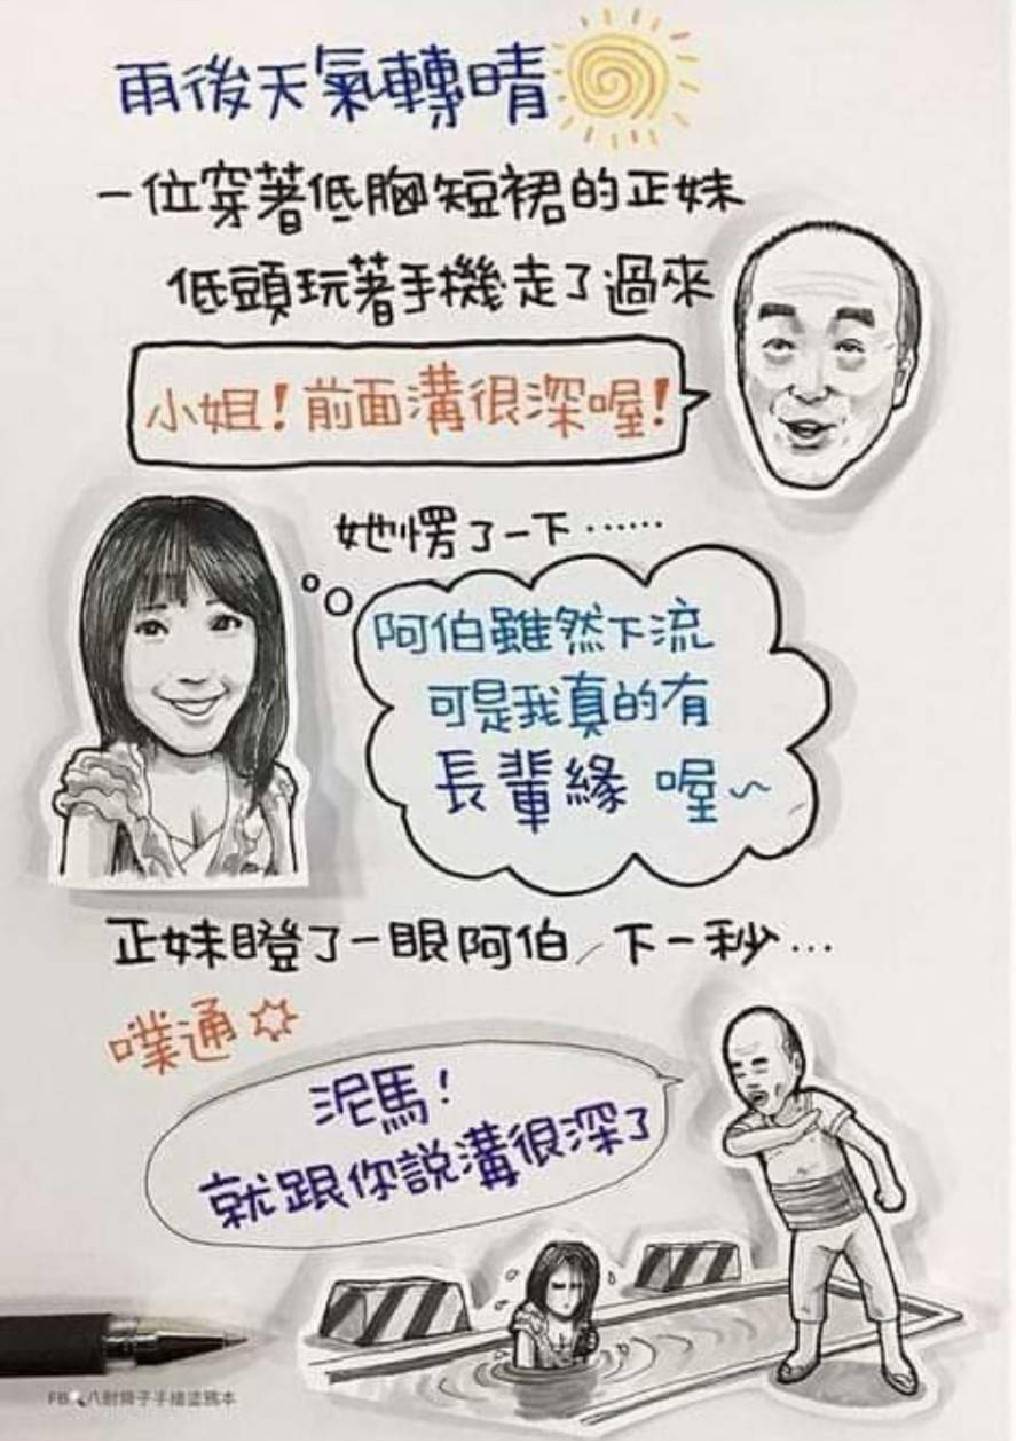 雨後天氣轉晴
一位穿著低胸短裙的正妹
低頭玩著手機走了過來
小姐！前面溝很深喔！
她愣了一下……
阿伯雖然下流
可是我真的有
長輩緣 喔~
正妹瞪了一眼阿伯／下一秒…
噗通
泥馬！
就跟你說溝很深了